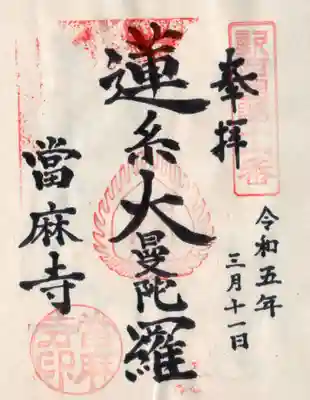 奉拝
令和五年
三月十一日
蓮糸大曼陀羅
當麻寺
當麻寺印